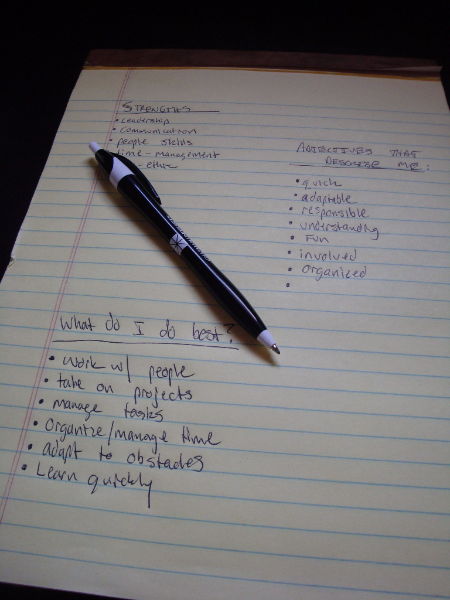 STRENGTHS
• Leadership
• communication
• people skills
time-management
- ethic
ADJECTIVES THAT
DESCRIBE ME:
• quick
• adaptable
• responsible
• understanding
• FUN
• involved
• organized
•
What do I do best?
• Work w/ people
• take on projects
• manage tasks
• organize/manage time
• adapt to obstacles
• Learn quickly